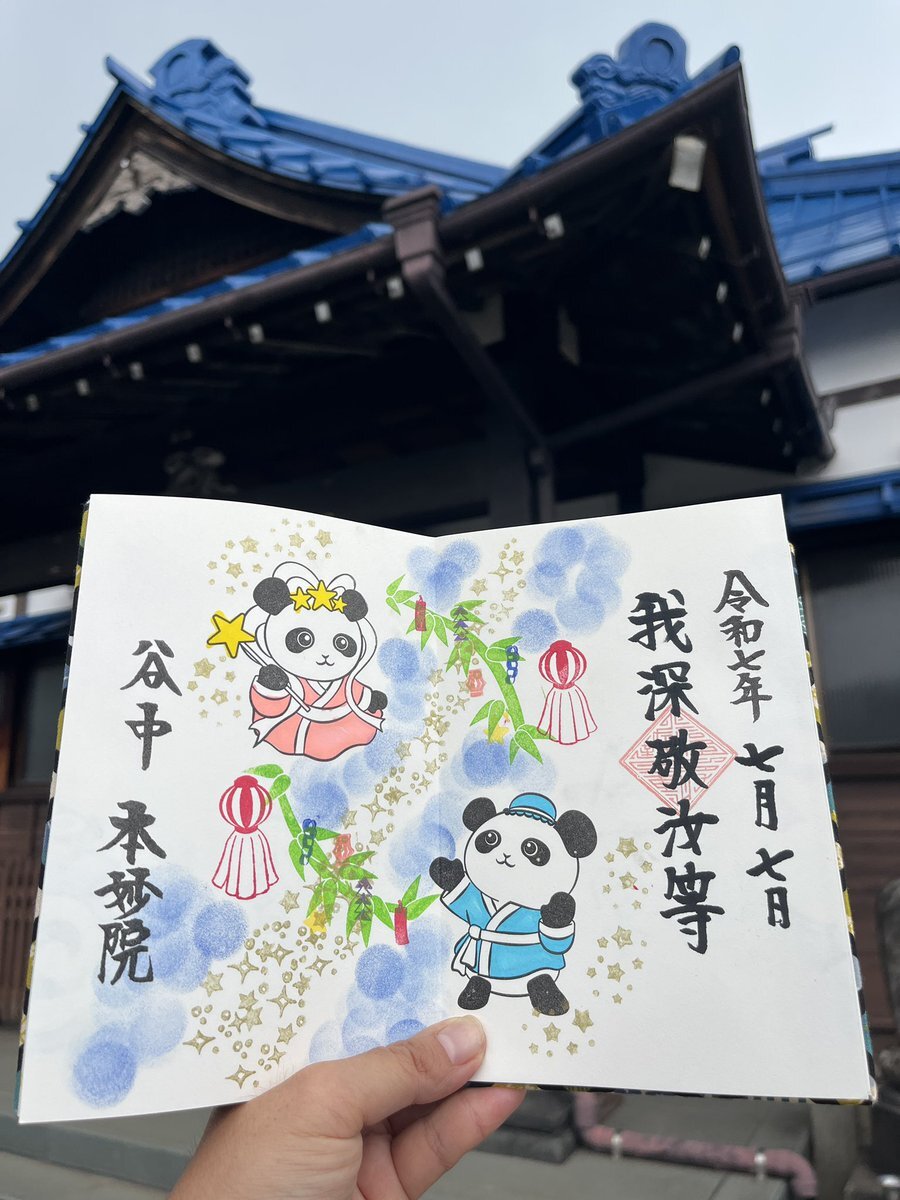 令和七年 七月七日
我深敬汝等
谷中 本妙院